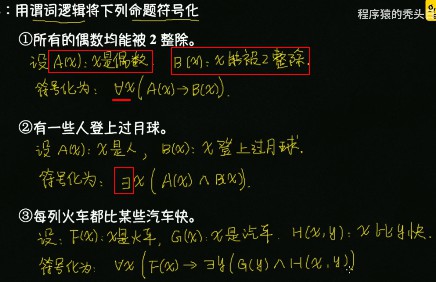 ：用谓词逻辑将下列命题符号化
程序猿的秃头
①所有的偶数均能被 2 整除。
设 A(x)：x是偶数 B(x)：x能被2整除.
符号化为： ∀x (A(x)→B(x)).
②有一些人登上过月球。
设 A(x)：x是人， B(x)：x登上过月球.
符号化为： ∃x (A(x)∧B(x)).
③每列火车都比某些汽车快。
设：F(x)：x是火车, G(x)：x是汽车. H(x,y)：x比y快.
符号化为： ∀x (F(x)→∃y(G(y)∧H(x,y))